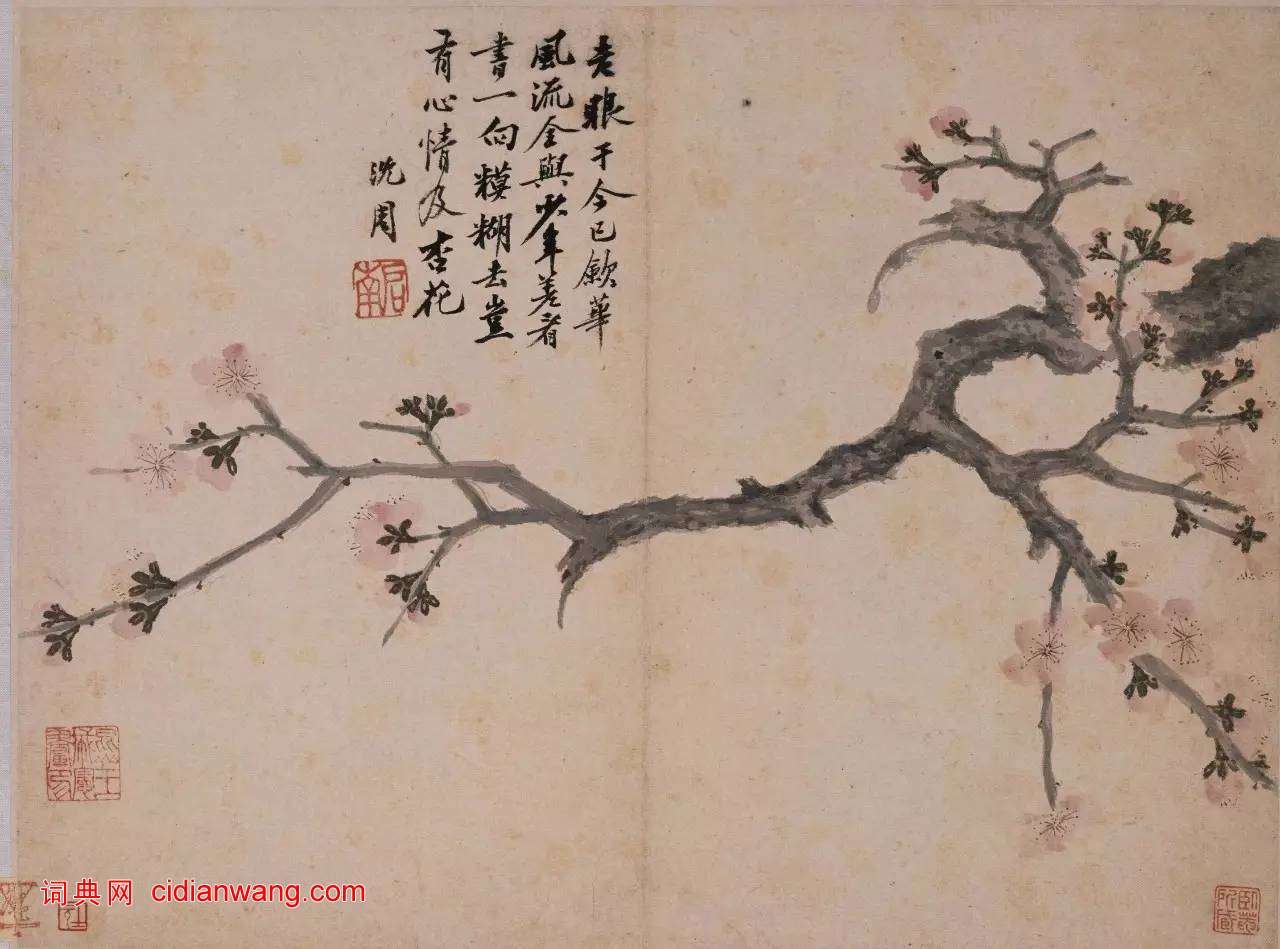 老眼于今已歛華
風流全與少年差看
書一向糢糊去豈
有心情及杏花
沈周
启南
臥菴所藏
词典网 cidianwang.com